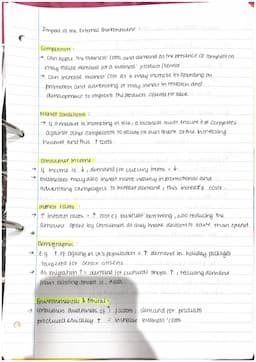 Impact of the External Environment :
Competition :
→ Can affect the business' costs and demand as the presence of competition
may reduce demand for a business' product / service
→ Can increase business' costs as it may increase its spending on
promotion and advertising or may invest in research and
development to improve the products offered for sale.
Market Conditions :
→ If a business is interesting in
against other competitors to
revenue and thus ↑ costs
Consumer Income :
→ If income is ↓, demand for luxury items = ↓.
→ Businesses may also invest more money in promotional and
advertising campaigns to increase demand, this increases costs.
Interest Rates :
→ ↑ interest rates = ↑ cost of business' borrowing, also reducing the
amount spent by consumers as they have decided to save than spend.
Demographic
→ E.g. ↑ of ageing in UK's population = ↑ demand in holiday packages
targeted for senior citizens
→ As migration ↑ = demand for cultural shops ↑, reducing demand
from existing shops i.e. ASDA.
Environmental & Ethical
→ Consumers awareness of ↑ issues, demand for products
produced ethically ↑ = increase business' costs